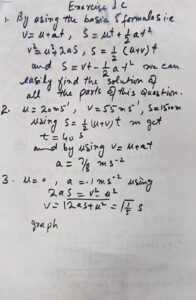 Exercise 1C
1. By using the basic 5 formulas i.e
v = u+at, s = ut + 1/2 at²
v² = u² + 2as, s = 1/2 (u+v)t
and s = vt - 1/2 at² we can
easily find the solution of
all the parts of this question.
2. u = 20 ms⁻¹, v = 55 ms⁻¹, s = 1500 m
using s = 1/2 (u+v)t we get
t = 40 s
and by using v = u+at
a = 7/8 ms⁻²
3. u = 0, a = .1 ms⁻² using
2as = v² - u²
v = √2as+u² = √1/5 s
graph